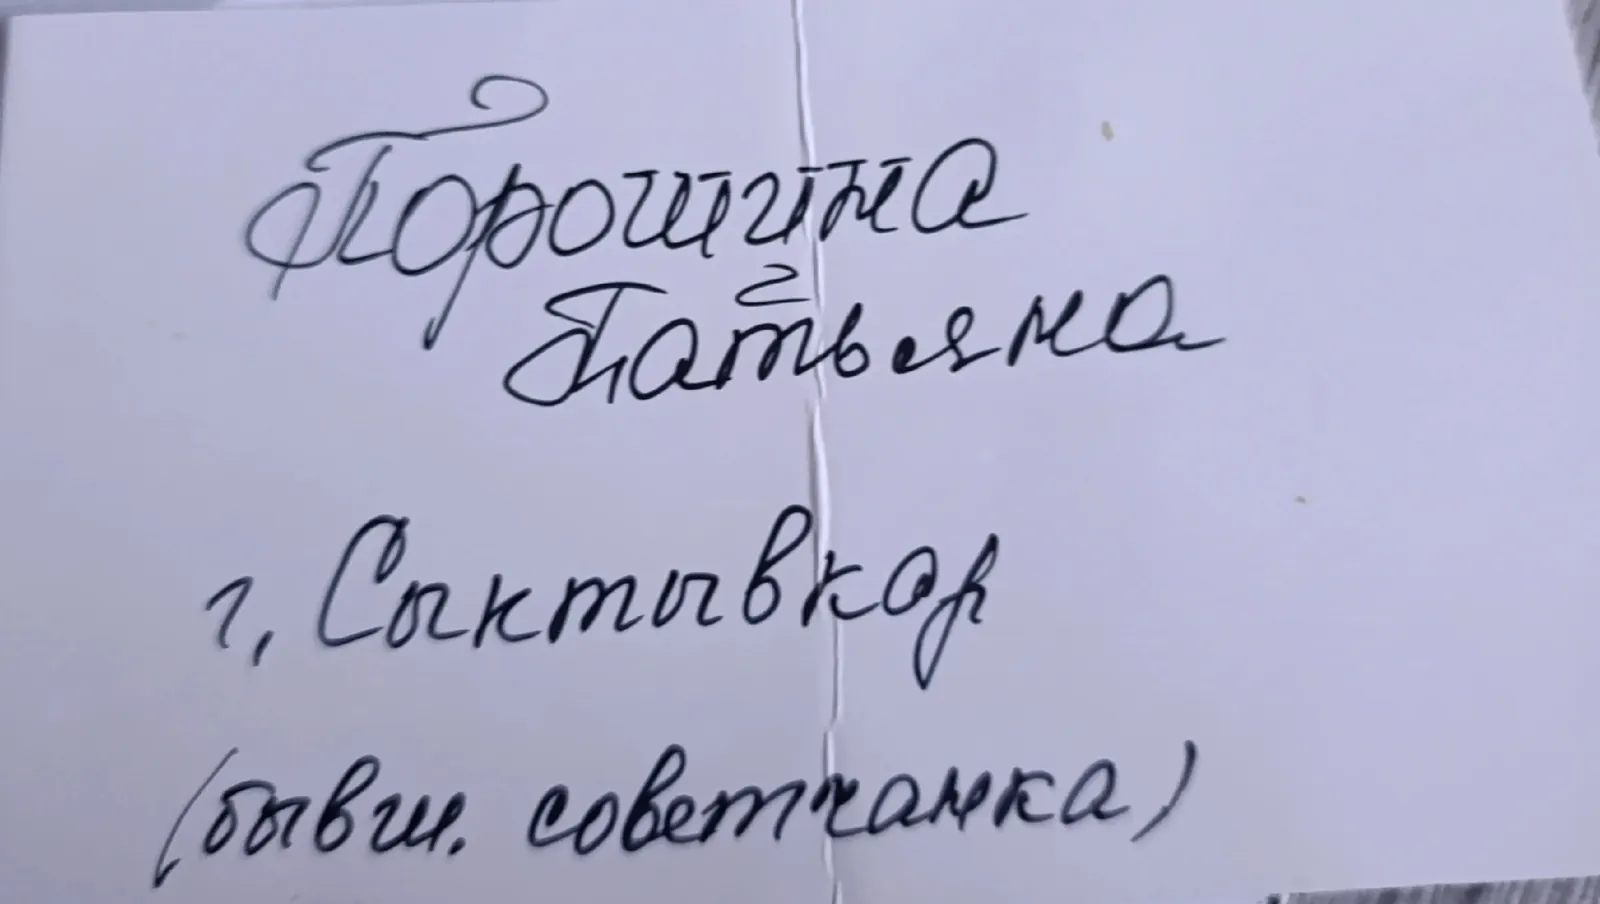 Порошина
Татьяна
г. Сыктывкар
(бывш. советчанка)